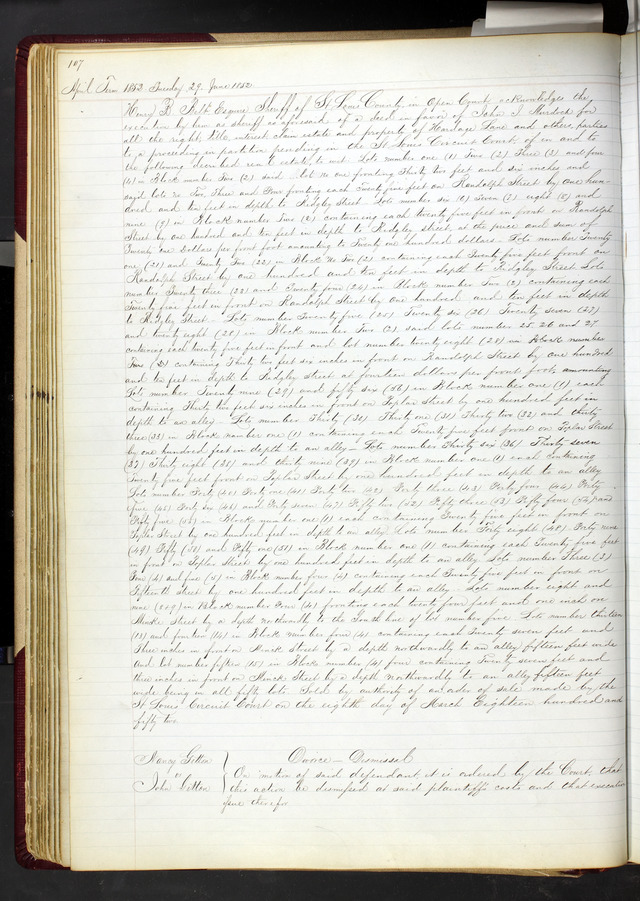 107
April Term 1852 Tuesday 29. June 1852
Henry B. Belt Esquire Sheriff of St Louis County in Open Court acknowledges the
execution by him as sheriff as aforesaid of a deed in favor of John J. Murdoch for
all the right, title, interest, claim estate and property of Hardage Lane and others, parties
to a proceeding in partition pending in the St Louis Circuit Court, of in and to
the following described real estate, to wit: Lots number one (1) Two (2) Three (3) and four
(4) in Block Number Two (2) said lot No one fronting Thirty two feet and six inches and
said lots No Two, Three and Four fronting each Twenty five feet on Randolph Street by One hun-
dred and ten feet in depth to Ridgley Street Lots number six (6) Seven (7) eight (8) and
nine (9) in Block number Two (2) containing each twenty five feet in front on Randolph
Street by one hundred and ten feet in depth to Ridgley street, at the price and sum of
Twenty one Dollars per front foot amounting to Twenty one hundred dollars. Lots number Twenty
one (21) and Twenty Two (22) in Block No Two (2) containing each Twenty five feet front on
Randolph Street by one hundred and ten feet in depth to Ridgley Street Lots
number Twenty three (23) and Twenty four (24) in Block number Two (2) containing each
Twenty five feet in front on Randolph Street by one hundred and ten feet in depth
to Ridgley Street Lots number Twenty five (25) Twenty six (26) Twenty Seven (27)
and twenty eight (28) in Block number Two (2) said lots number 25. 26 and 27
containing each twenty five feet in front and lot number twenty eight (28) in Block number
Two (2) containing Thirty two feet six inches in front on Randolph Street by one hundred
and ten feet in depth to Ridgley street at fourteen dollars per front foot, amounting
Lots number Twenty nine (29) and fifty six (56) in Block number one (1) each
containing Thirty two feet six inches in front on Poplar Street by one hundred feet in
depth to an alley - Lots number Thirty (30) Thirty one (31) Thirty two (32) and thirty
three (33) in Block number one (1) containing each Twenty five feet front on Poplar Street
by one hundred feet in depth to an alley - Lots number Thirty six (36) Thirty seven
(37) Thirty eight (38) and thirty nine (39) in Block number one (1) each containing
Twenty five feet front on Poplar Street by one hundred feet in depth to an alley
Lots number Forty (40) Forty one (41) Forty two (42) Forty three (43) Forty four (44) Forty
five (45) Forty six (46) and Forty seven (47) Fifty two (52) Fifty three (53) Fifty four (54) and
Fifty five (55) in Block number one (1) each containing Twenty five feet in front on
Poplar Street by one hundred feet in depth to an alley Lots number Forty eight (48) Forty nine
(49) Fifty (50) and Fifty one (51) in Block number one (1) containing each Twenty five feet
in front on Poplar Street by one hundred feet in depth to an alley Lots number Three (3)
Four (4) and five (5) in Block number four (4) containing each Twenty five feet in front on
Fifteenth Street by one hundred feet in depth to an alley Lots number eight and
nine (8 & 9) in Block number Four (4) fronting each twenty four feet and one inch on
Street by a depth northwardly to the South line of lot number five Lots number thirteen
(13) and fourteen (14) in Block number four (4) containing each Twenty seven feet and
Three inches in front on Street by a depth northwardly to an alley fifteen feet wide
And lot number fifteen (15) in Block number (4) four containing Twenty seven feet and
three inches in front on Street by a depth northwardly to an alley fifteen feet
wide being in all fifty lots. Sold by authority of an order of sale made by the
St Louis Circuit Court on the eighth day of March Eighteen hundred and
fifty two
Nancy Gitton
vs
John Gitton
Divorce - Dismissal
On motion of said defendant it is ordered by the Court, that
this action be dismissed at said plaintiff's costs and that execution
issue therefor